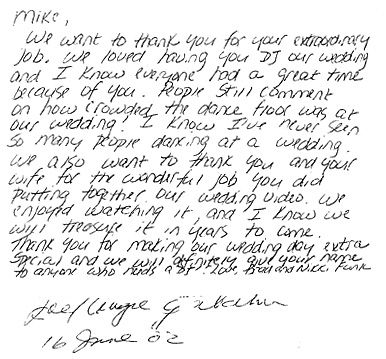 Mike,
We want to thank you for your extraordinary
job. We loved having you DJ our wedding
and I know everyone had a great time
because of you. People still comment
on how crowded the dance floor was at
our wedding! I know I've never seen
so many people dancing at a wedding.
We also want to thank you and your
wife for the wonderful job you did
putting together our wedding video. We
enjoyed watching it, and I know we
will treasure it in years to come.
Thank you for making our wedding day extra
special and we will definitely give your name
to anyone who needs a DJ! Love, Brad and Nikki Funk
16 June 02